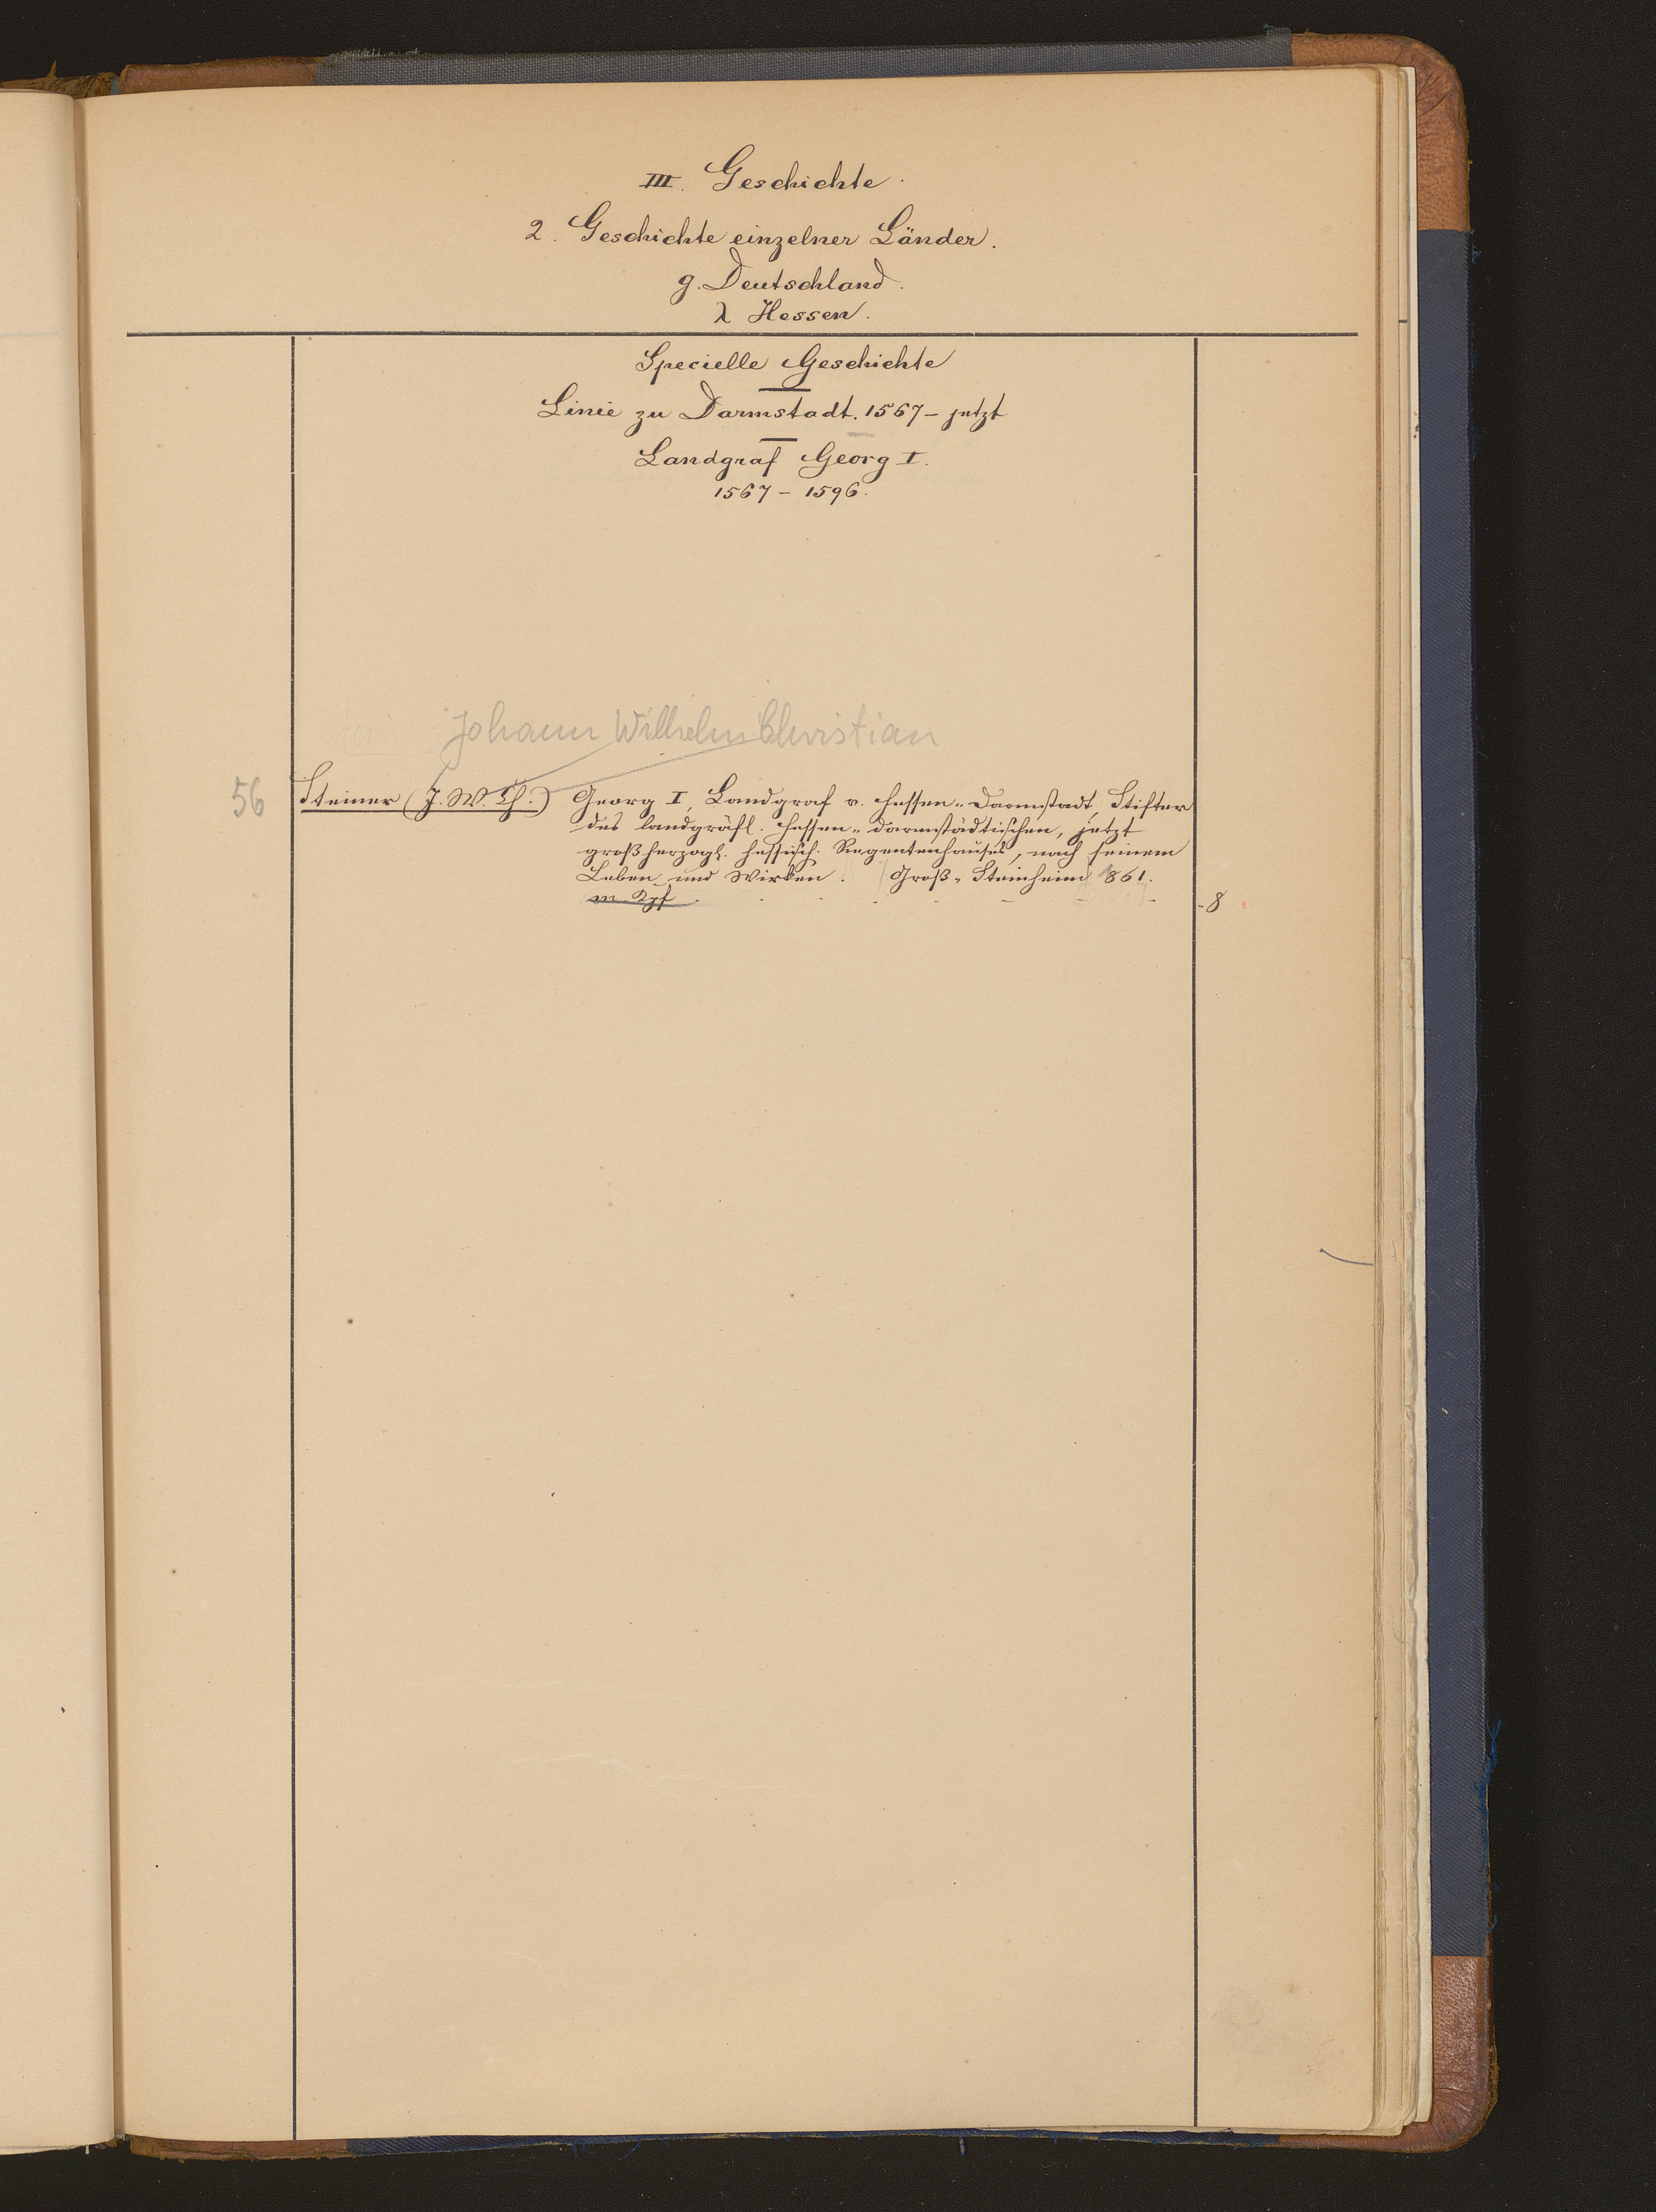 III. Geschichte.
2. Geschichte einzelner Länder.
g. Deutschland.
λ Hessen.
Specielle Geschichte
Linie zu Darmstadt. 1567 - jetzt
Landgraf Georg I.
1567 - 1596.
Johann Wilhelm Christian
56 Steiner (J. W. Ch.) Georg I, Landgraf v. Hessen-Darmstadt, Stifter
des landgräfl. hessen-darmstädtischen, jetzt
großherzogl. hessisch. Regentenhauses, nach seinem
Leben und Wirken. Groß-Steinheim 861.
m. Kpf. - 8